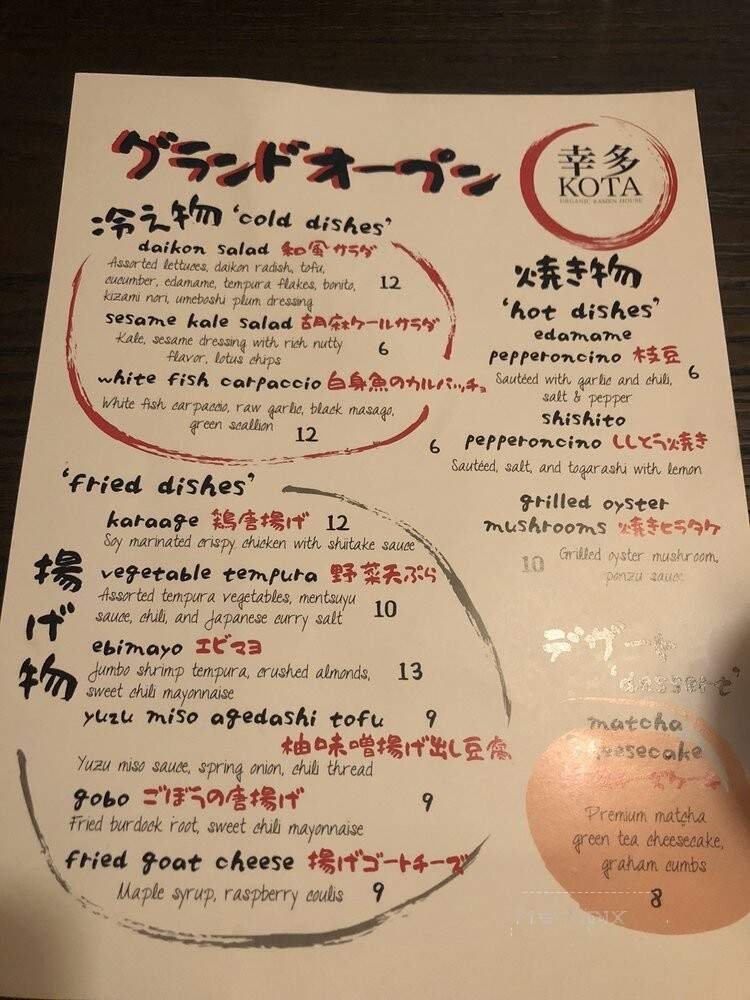 グランドオープン
幸多
KOTA
ORGANIC RAMEN HOUSE
冷え物 'cold dishes'
daikon salad 和風サラダ
Assorted lettuces, daikon radish, tofu,
cucumber, edamame, tempura flakes, bonito,
kizami nori, umeboshi plum dressing
12
sesame kale salad 胡麻ケールサラダ
Kale, sesame dressing with rich nutty
flavor, lotus chips
6
white fish carpaccio 白身魚のカルパッチョ
White fish carpaccio, raw garlic, black masago,
green scallion
12
焼き物
'hot dishes'
edamame
pepperoncino 枝豆
Sautéed with garlic and chili,
salt & pepper
6
shishito
pepperoncino ししとう焼き
6
Sautéed, salt, and togarashi with lemon
grilled oyster
mushrooms 焼きヒラタケ
10
Grilled oyster mushroom,
ponzu sauce
'fried dishes'
揚げ物
karaage 鶏唐揚げ 12
Soy marinated crispy chicken with shiitake sauce
vegetable tempura 野菜天ぷら
Assorted tempura vegetables, mentsuyu
sauce, chili, and Japanese curry salt
10
ebimayo エビマヨ
Jumbo shrimp tempura, crushed almonds,
sweet chili mayonnaise
13
yuzu miso agedashi tofu 9
柚味噌揚げ出し豆腐
Yuzu miso sauce, spring onion, chili thread
gobo ごぼうの唐揚げ 9
Fried burdock root, sweet chili mayonnaise
fried goat cheese 揚げゴートチーズ
Maple syrup, raspberry coulis 9
デザート
'dessert'
matcha
cheesecake
Premium matcha
green tea cheesecake,
graham cumbs
8